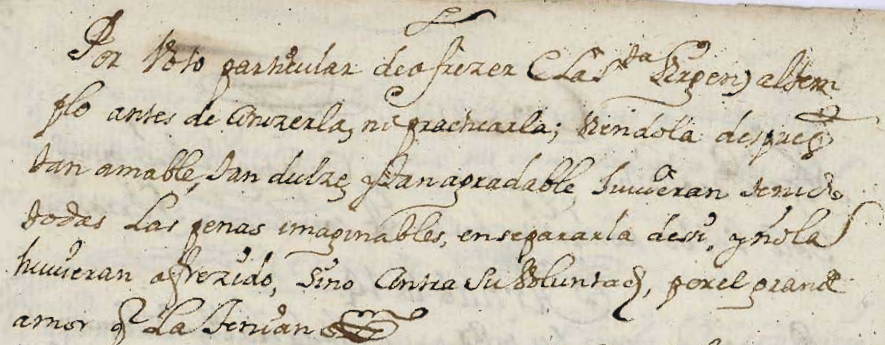 Por voto particular de ofrezer a la S.ta Virgen, al tem
plo antes de Conzerla, ni practicarla; viendola despues
tan amable, tan dulze, y tan agradable, huvieran tenido
todas las penas imaginables, en separarla de si, y no la
huvieran ofrezido, sino Contra su voluntad, por el grande
amor q la tenian